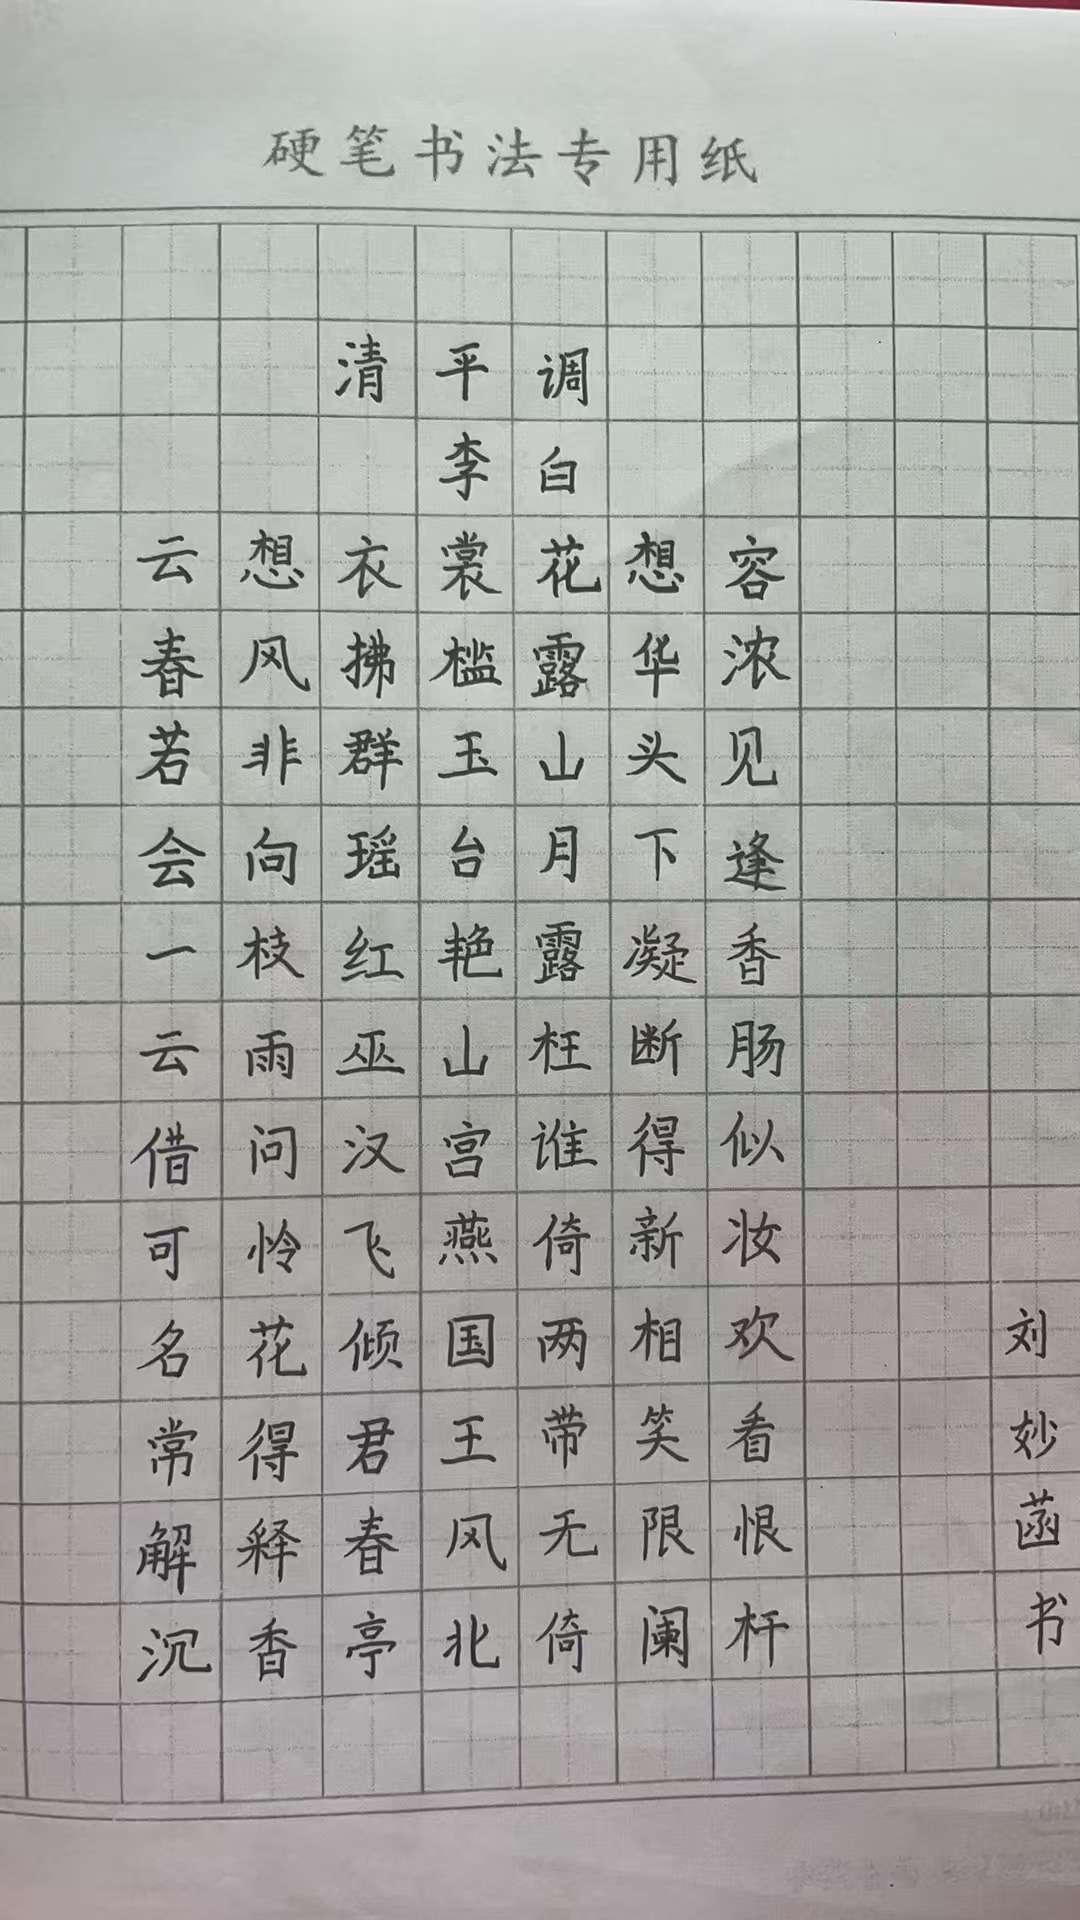 硬笔书法专用纸
清平调
李白
云想衣裳花想容
春风拂槛露华浓
若非群玉山头见
会向瑶台月下逢
一枝红艳露凝香
云雨巫山枉断肠
借问汉宫谁得似
可怜飞燕倚新妆
名花倾国两相欢
常得君王带笑看
解释春风无限恨
沉香亭北倚阑杆
刘妙菡书